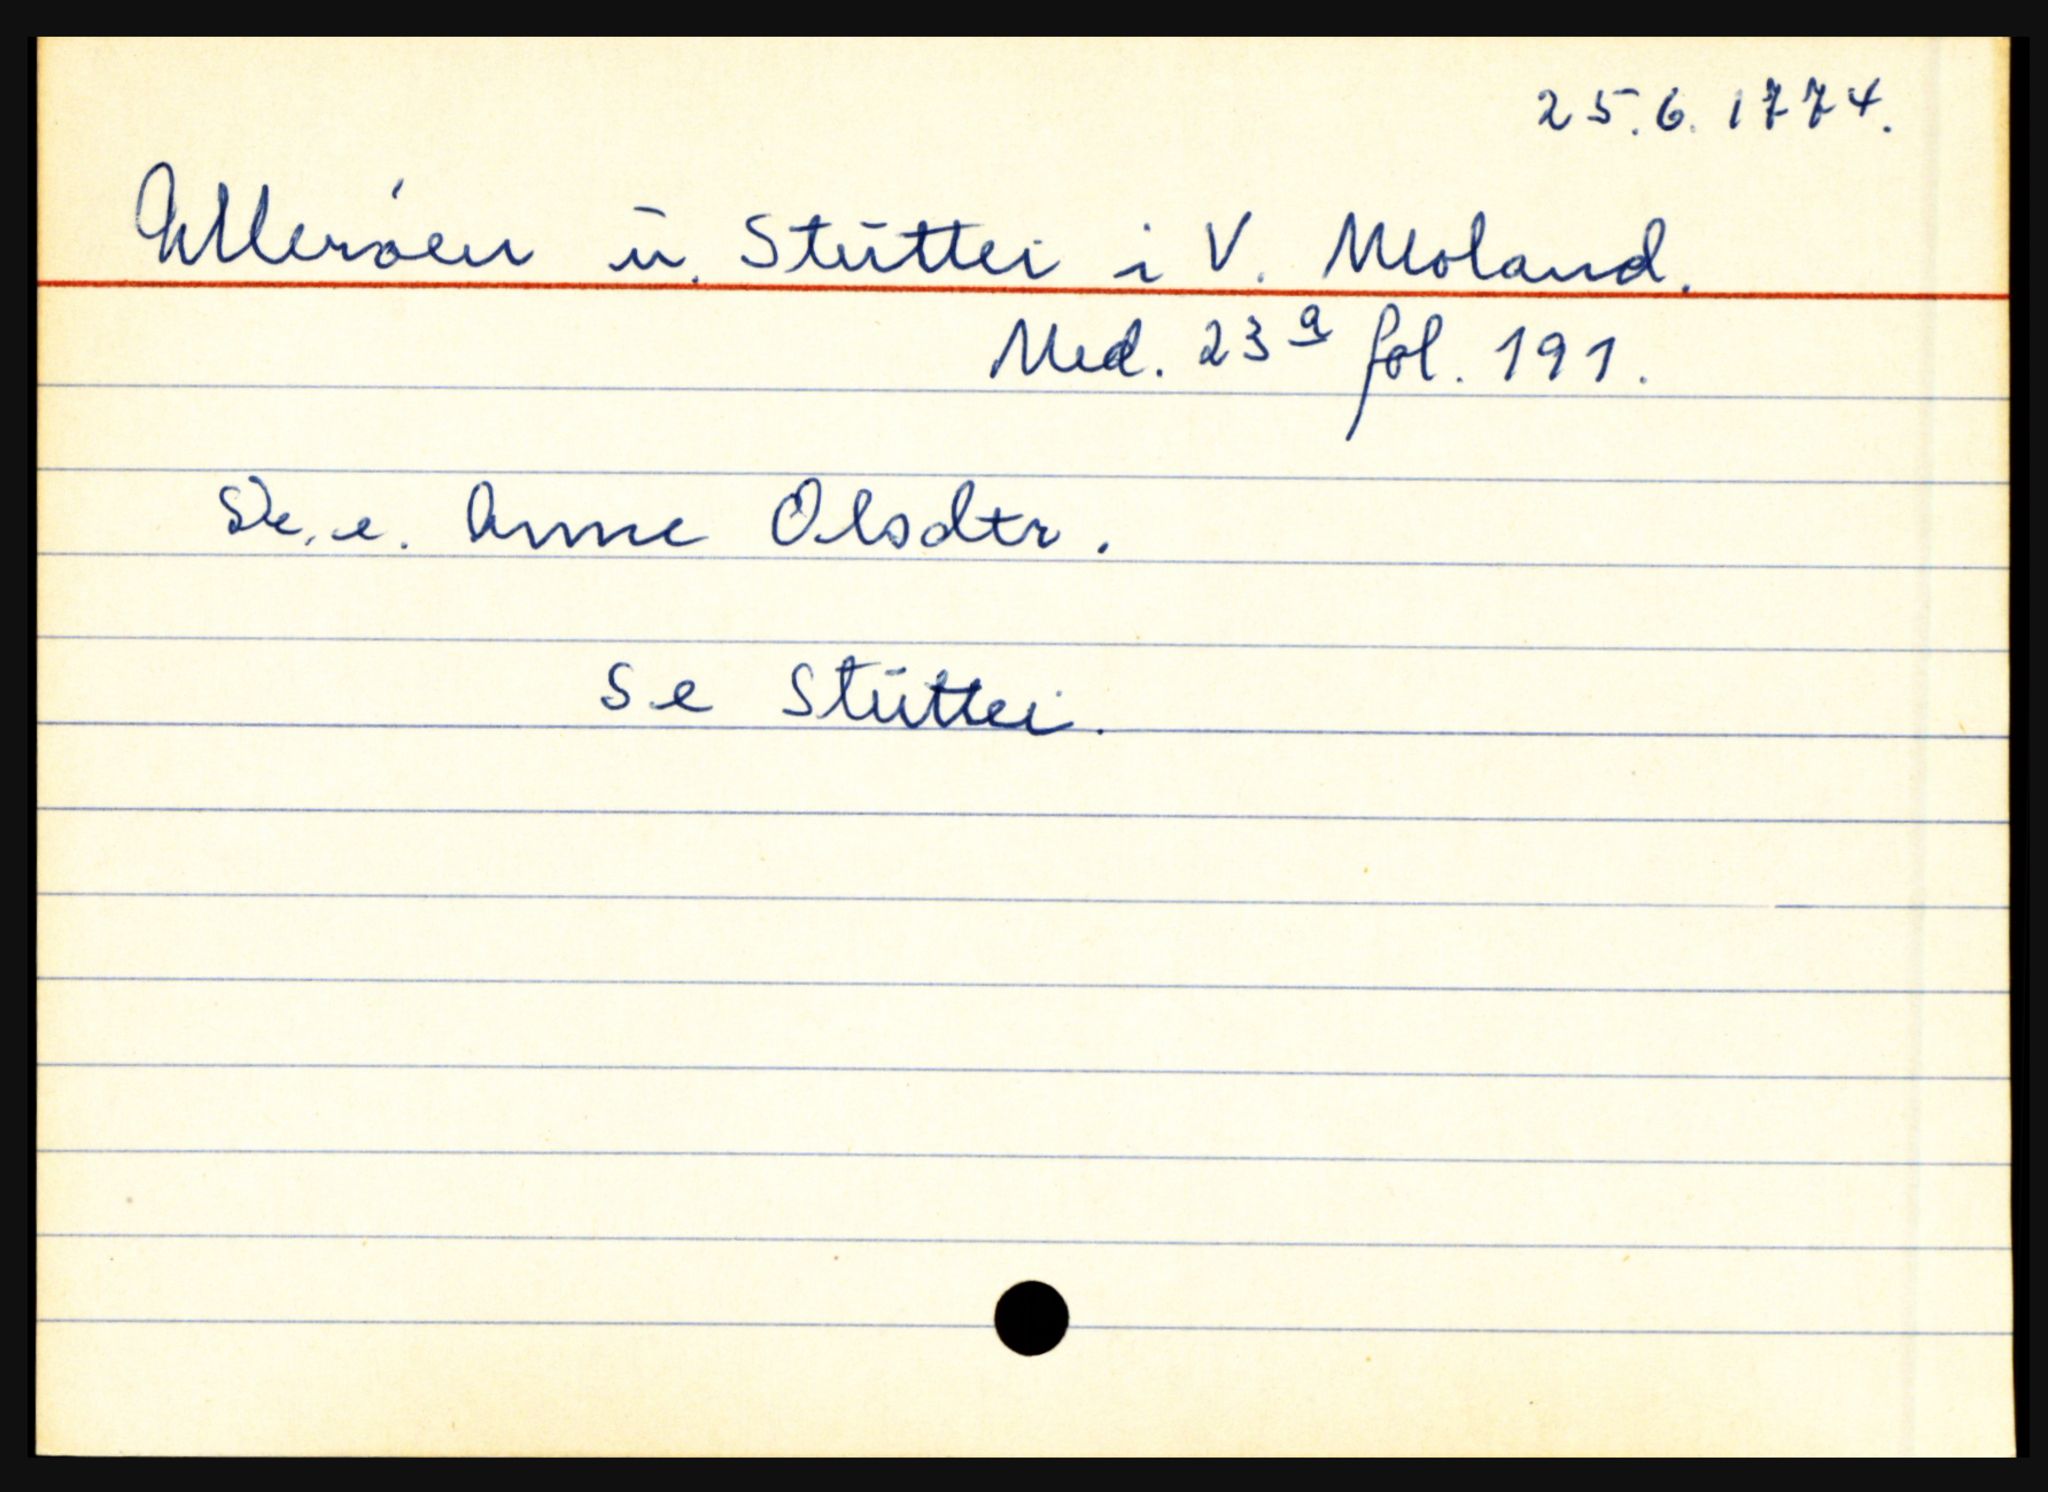 25.6.1774.
Ullerøen u. Stuttei i V. Moland.
Ned. 23a fol. 191.
Sk. e. Anne Olsdtr.
Se Stuttei.